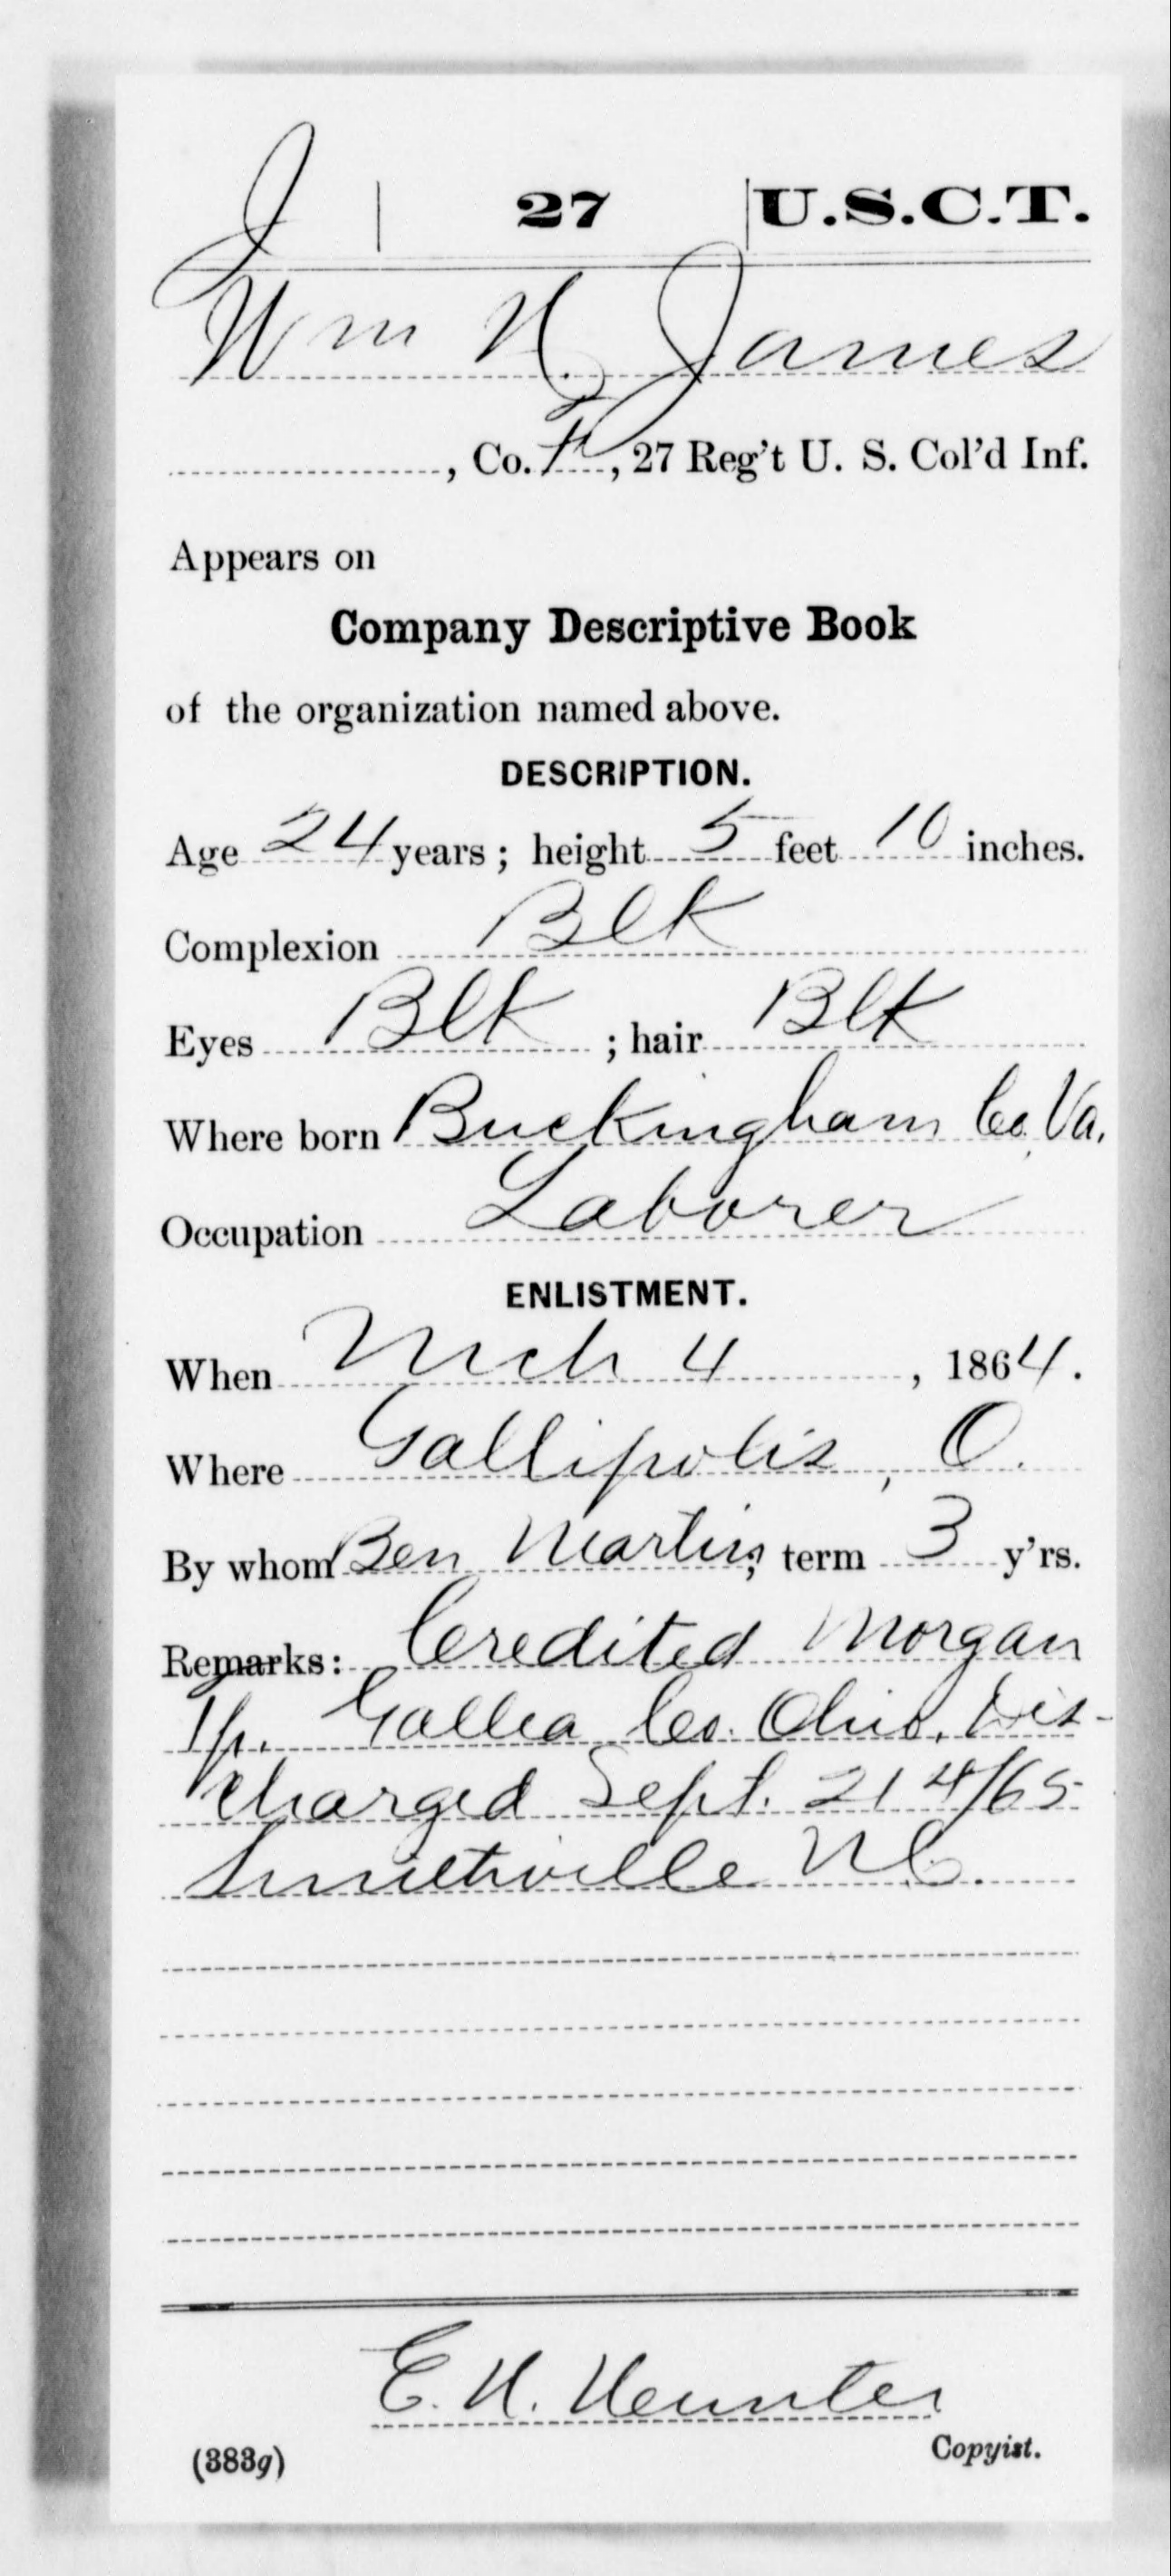 J | 27 | U.S.C.T.
Wm H. James
, Co. F, 27 Reg't U. S. Col'd Inf.
Appears on
Company Descriptive Book
of the organization named above.
DESCRIPTION.
Age 24 years; height 5 feet 10 inches.
Complexion Blk
Eyes Blk; hair Blk
Where born Buckingham Co. Va.
Occupation Laborer
ENLISTMENT.
When Mch 4, 1864.
Where Gallipolis, O.
By whom Ben Martin; term 3 y'rs.
Remarks: Credited Morgan
Tp. Gallia Co. Ohio. Dis-
charged Sept. 21 /65
Smithville N.C.
E. H.
(383g)
Copyist.